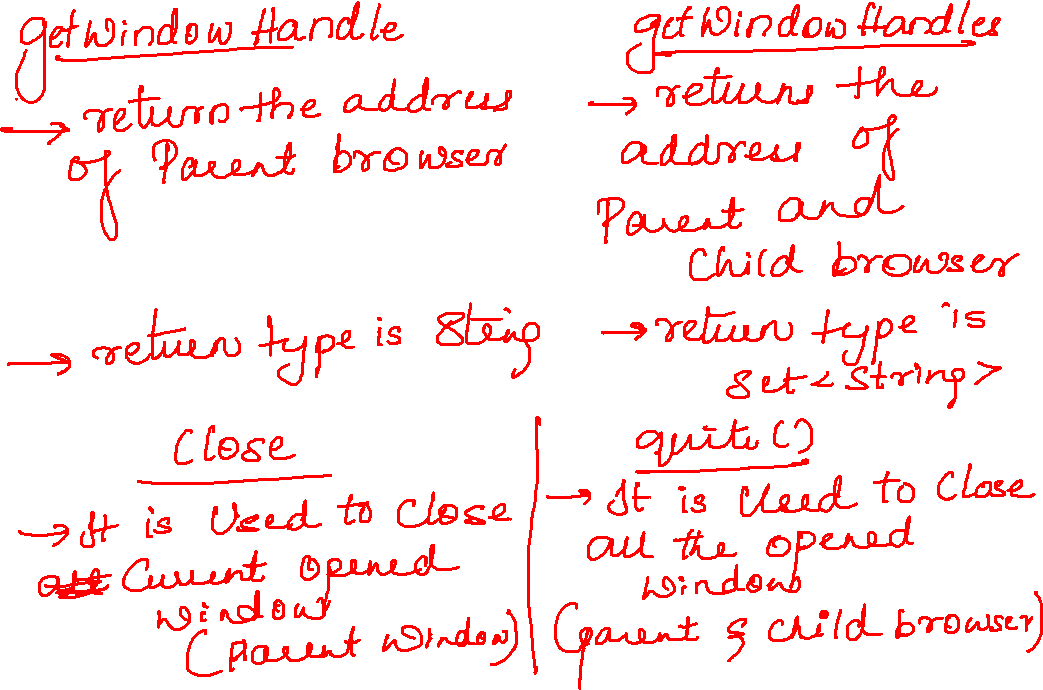 getWindow Handle
→ return the address
of Parent browser
→ return type is String
getWindow Handles
→ returns the
address of
Parent and
Child browser
→ return type is
set<String>
Close
→ It is Used to close
all Current opened
window
(Parent Window)
quite()
→ It is Used to Close
all the opened
Windows
(parent & child browser)